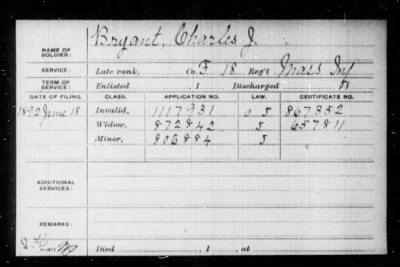 NAME OF SOLDIER: Bryant, Charles J.
SERVICE: Late rank, Co. F 18 Reg't Mass Inf
TERM OF SERVICE: Enlisted 1 Discharged
DATE OF FILING. CLASS. APPLICATION NO. LAW. CERTIFICATE NO.
1892 June 18 Invalid, 1117931 867352
Widow, 872842 J 657811
Minor, 806884 J
ADDITIONAL SERVICES:
REMARKS:
Died , 1 , at